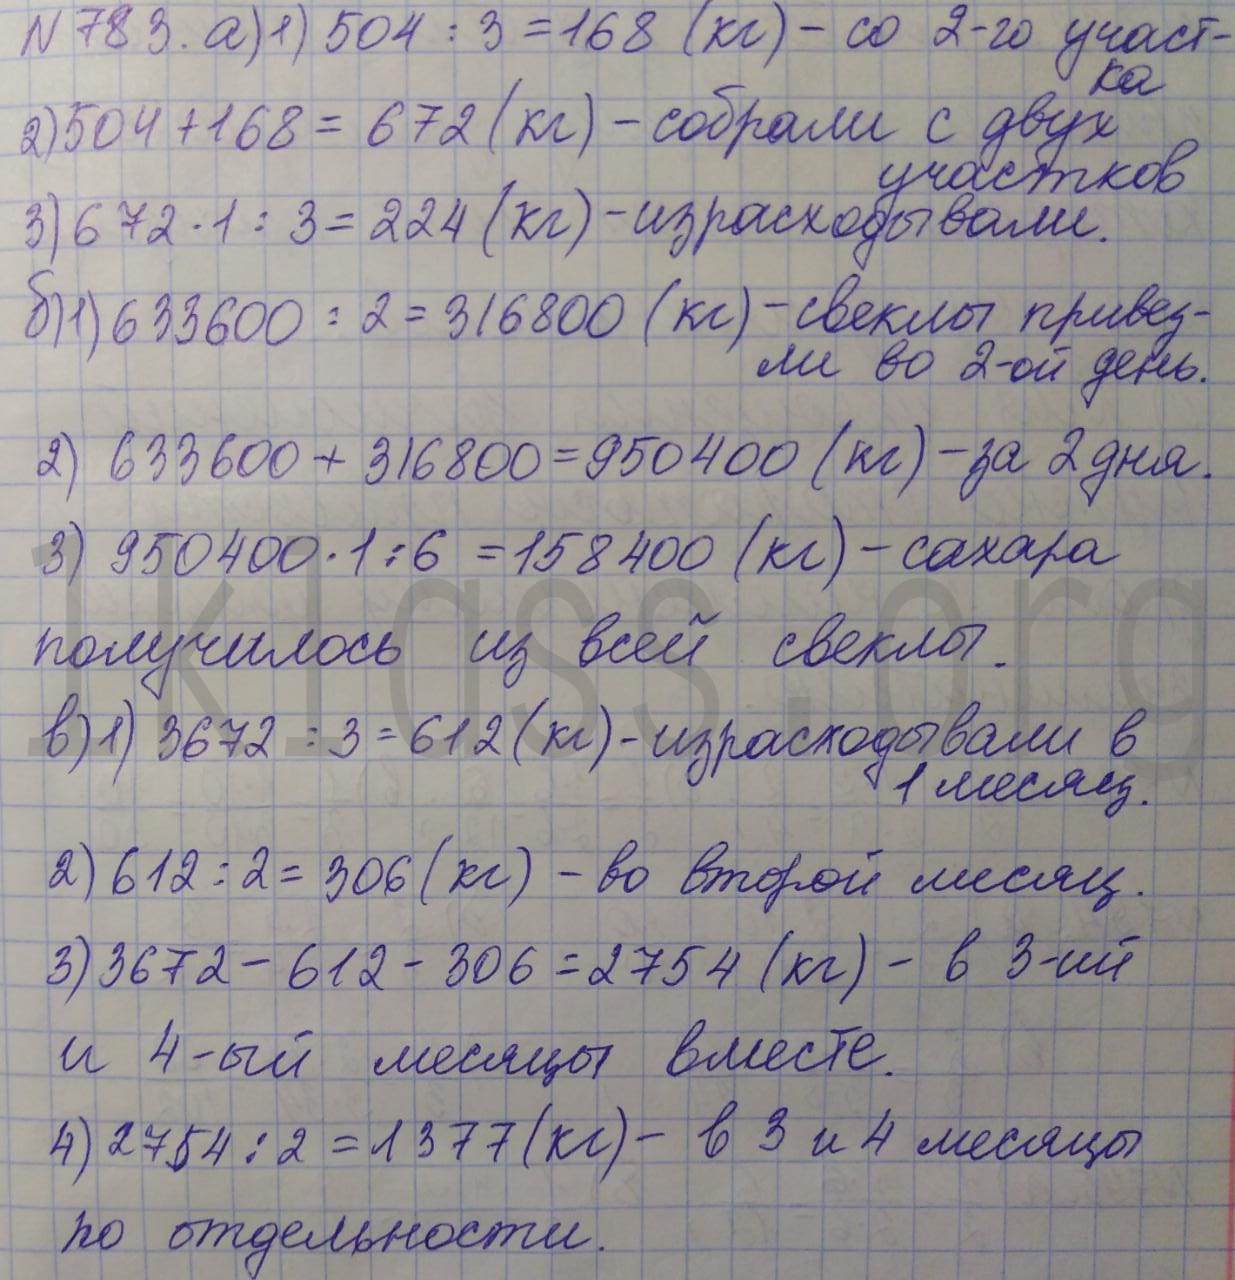 N 783. а)1) 504 : 3 = 168 (кг) – со 2-го участ-
ка
2) 504 + 168 = 672 (кг) – собрали с двух
участков
3) 672 · 1 : 3 = 224 (кг) – израсходывали.
б)1) 633600 : 2 = 316800 (кг) – свеклы привез-
ли во 2-ой день.
2) 633600 + 316800 = 950400 (кг) – за 2 дня.
3) 950400 · 1 : 6 = 158400 (кг) – сахара
получилось из всей свеклы.
в)1) 3672 : 3 = 612 (кг) – израсходывали в
1 месяц.
2) 612 : 2 = 306 (кг) – во второй месяц.
3) 3672 – 612 – 306 = 2754 (кг) – в 3-ий
и 4-ый месяцы вместе.
4) 2754 : 2 = 1377 (кг) – в 3 и 4 месяцы
по отдельности.
iklass.org